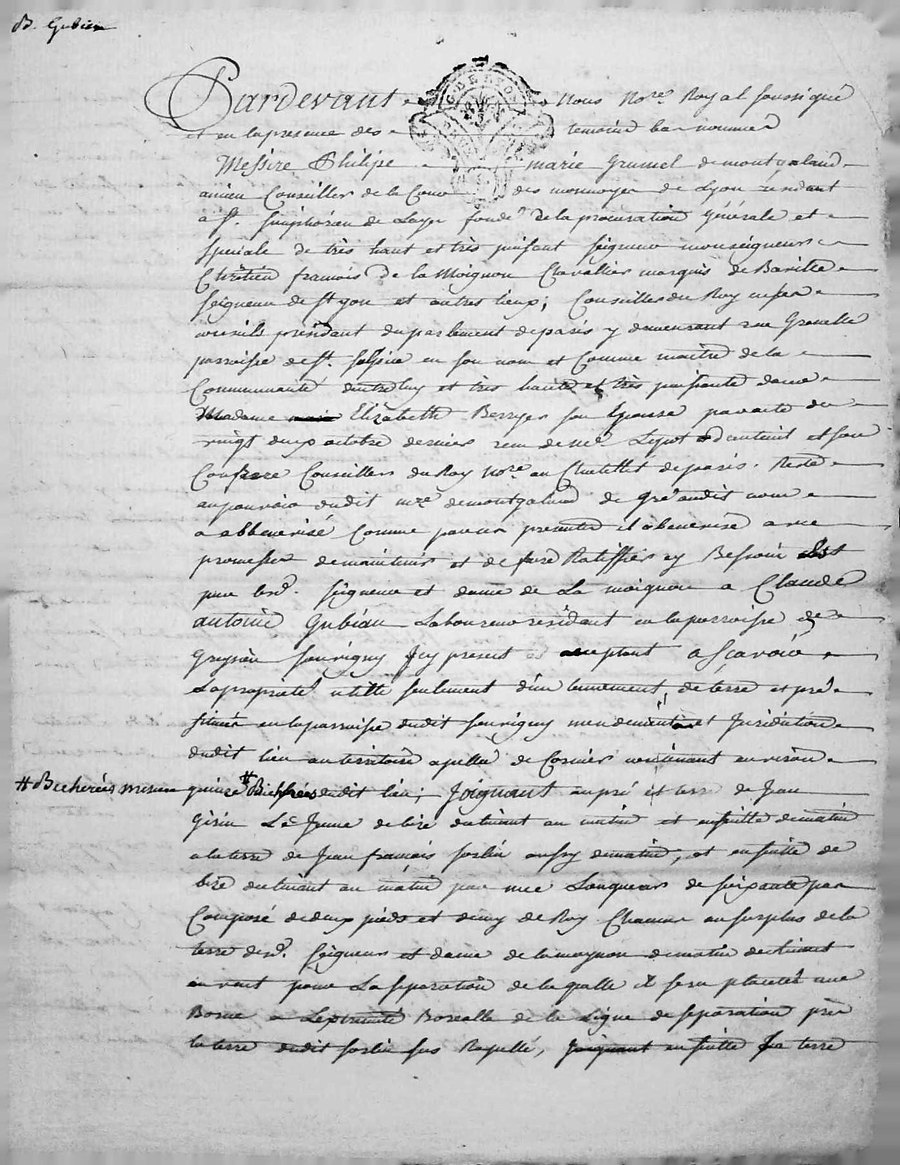 B. Gubian
Pardevant Nous No.re Royal soussigné
et en la presence des temoins bas nommés
Messire Philipe marie Grumel de montgaland
ancien Conseiller de la Cour des monnoyes de Lyon residant
à St. Simphorien de Laye fondé de la procuration Générale et
speciale de très haut et très puissant seigneur monseigneur
Chrétien francois de la Moignon Chevallier marquis de Baville
seigneur de St yon et autres lieux; Conseiller du Roy en ses
conseils président du parlement de paris y demeurant rue Grenelle
parroisse de St. Sulpice en son nom et Comme maitre de la
Communauté d'entre luy et très haute et très puissante dame
Madame Elizabeth Berryer son Epouse
vingt deux octobre dernier recu de me. et son
Confrere Conseillers du Roy no.re au Chatellet de paris. Resté
au pouvoir dudit mre. de montgaland de Gré audit nom
a abbenevisé Comme par ces presentes il abenevise avec
promesse de maintenir et de faire Ratiffier sy Besoin Est
par lesd. seigneur et dame de La moignon a Claude
antoine Gubian Laboureur residant en la parroisse de
Gresolle souvigny Icy present acceptant ascavoir
La propriété utille seulement d'un tennement de terre et pré
située en la parroisse dudit souvigny mandement et Juridiction
dudit lieu au territoire apellé de Cornier contenant environ
# Bicherées mesure quinze # dudit lieu; Joignant au pré et terre de Jean
Girin Le Jeune de bize declinant au matin et ensuitte de matin
a la terre de Jean francois forlin aussy de matin, et en suitte de
bize declinant au matin par une Longueur de soixante pas
Composé de deux pieds et demy de Roy Chacun au surplus de la
terre desd. seigneur et dame de la moignon de matin declinant
au vent pour La separation de la quelle il sera placée une
Borne a Lextremité Borealle de la Ligne de separation près
la terre dudit forlin sus Rapellé, Joignant en suitte La terre